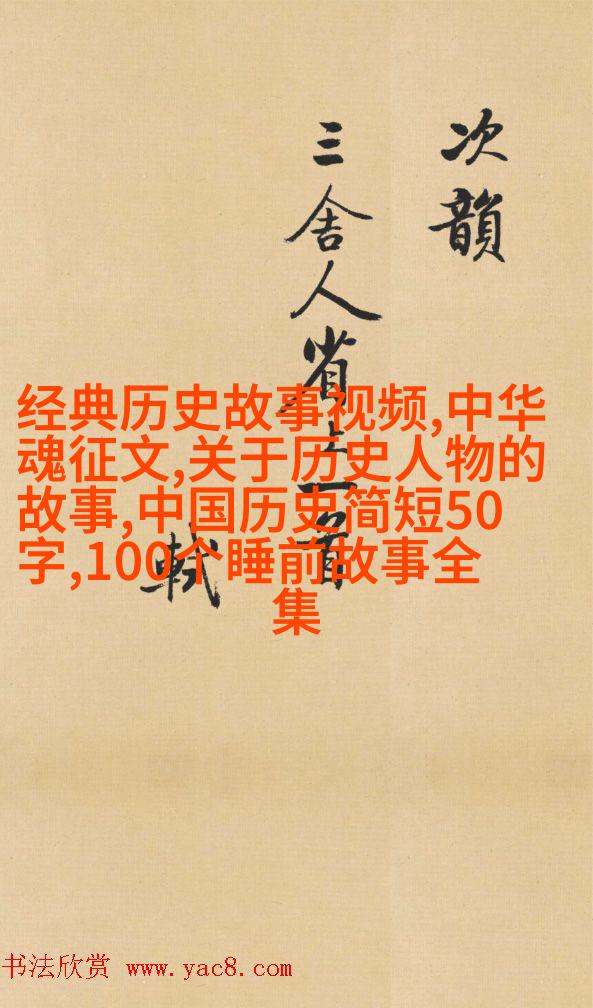 次韻
三舍人省上一首
軾
经典历史故事视频,中华
魂征文,关于历史人物的
故事,中国历史简短50
字,100个睡前故事全
集
书法欣赏 www.yac8.com